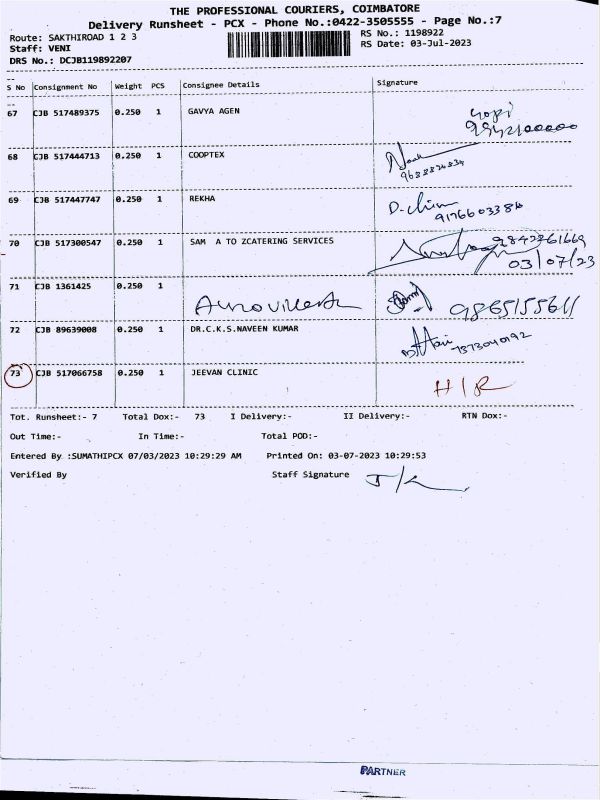 THE PROFESSIONAL COURIERS, COIMBATORE
Delivery Runsheet - PCX - Phone No.:0422-3505555 - Page No.:7
Route: SAKTHIROAD 1 2 3
RS No.: 1198922
Staff: VENI
RS Date: 03-Jul-2023
DRS No.: DCJB119892207
S No Consignment No Weight PCS Consignee Details Signature
67 CJB 517489375 0.250 1 GAVYA AGEN
68 CJB 517444713 0.250 1 COOPTEX
69 CJB 517447747 0.250 1 REKHA
70 CJB 517300547 0.250 1 SAM A TO ZCATERING SERVICES
03/07/23
71 CJB 1361425 0.250 1 9865155611
72 CJB 89639008 0.250 1 DR.C.K.S.NAVEEN KUMAR
73 CJB 517066758 0.250 1 JEEVAN CLINIC H/R
Tot. Runsheet:- 7 Total Dox:- 73 I Delivery:- II Delivery:- RTN Dox:-
Out Time:- In Time:- Total POD:-
Entered By :SUMATHIPCX 07/03/2023 10:29:29 AM Printed On: 03-07-2023 10:29:53
Verified By Staff Signature
PARTNER